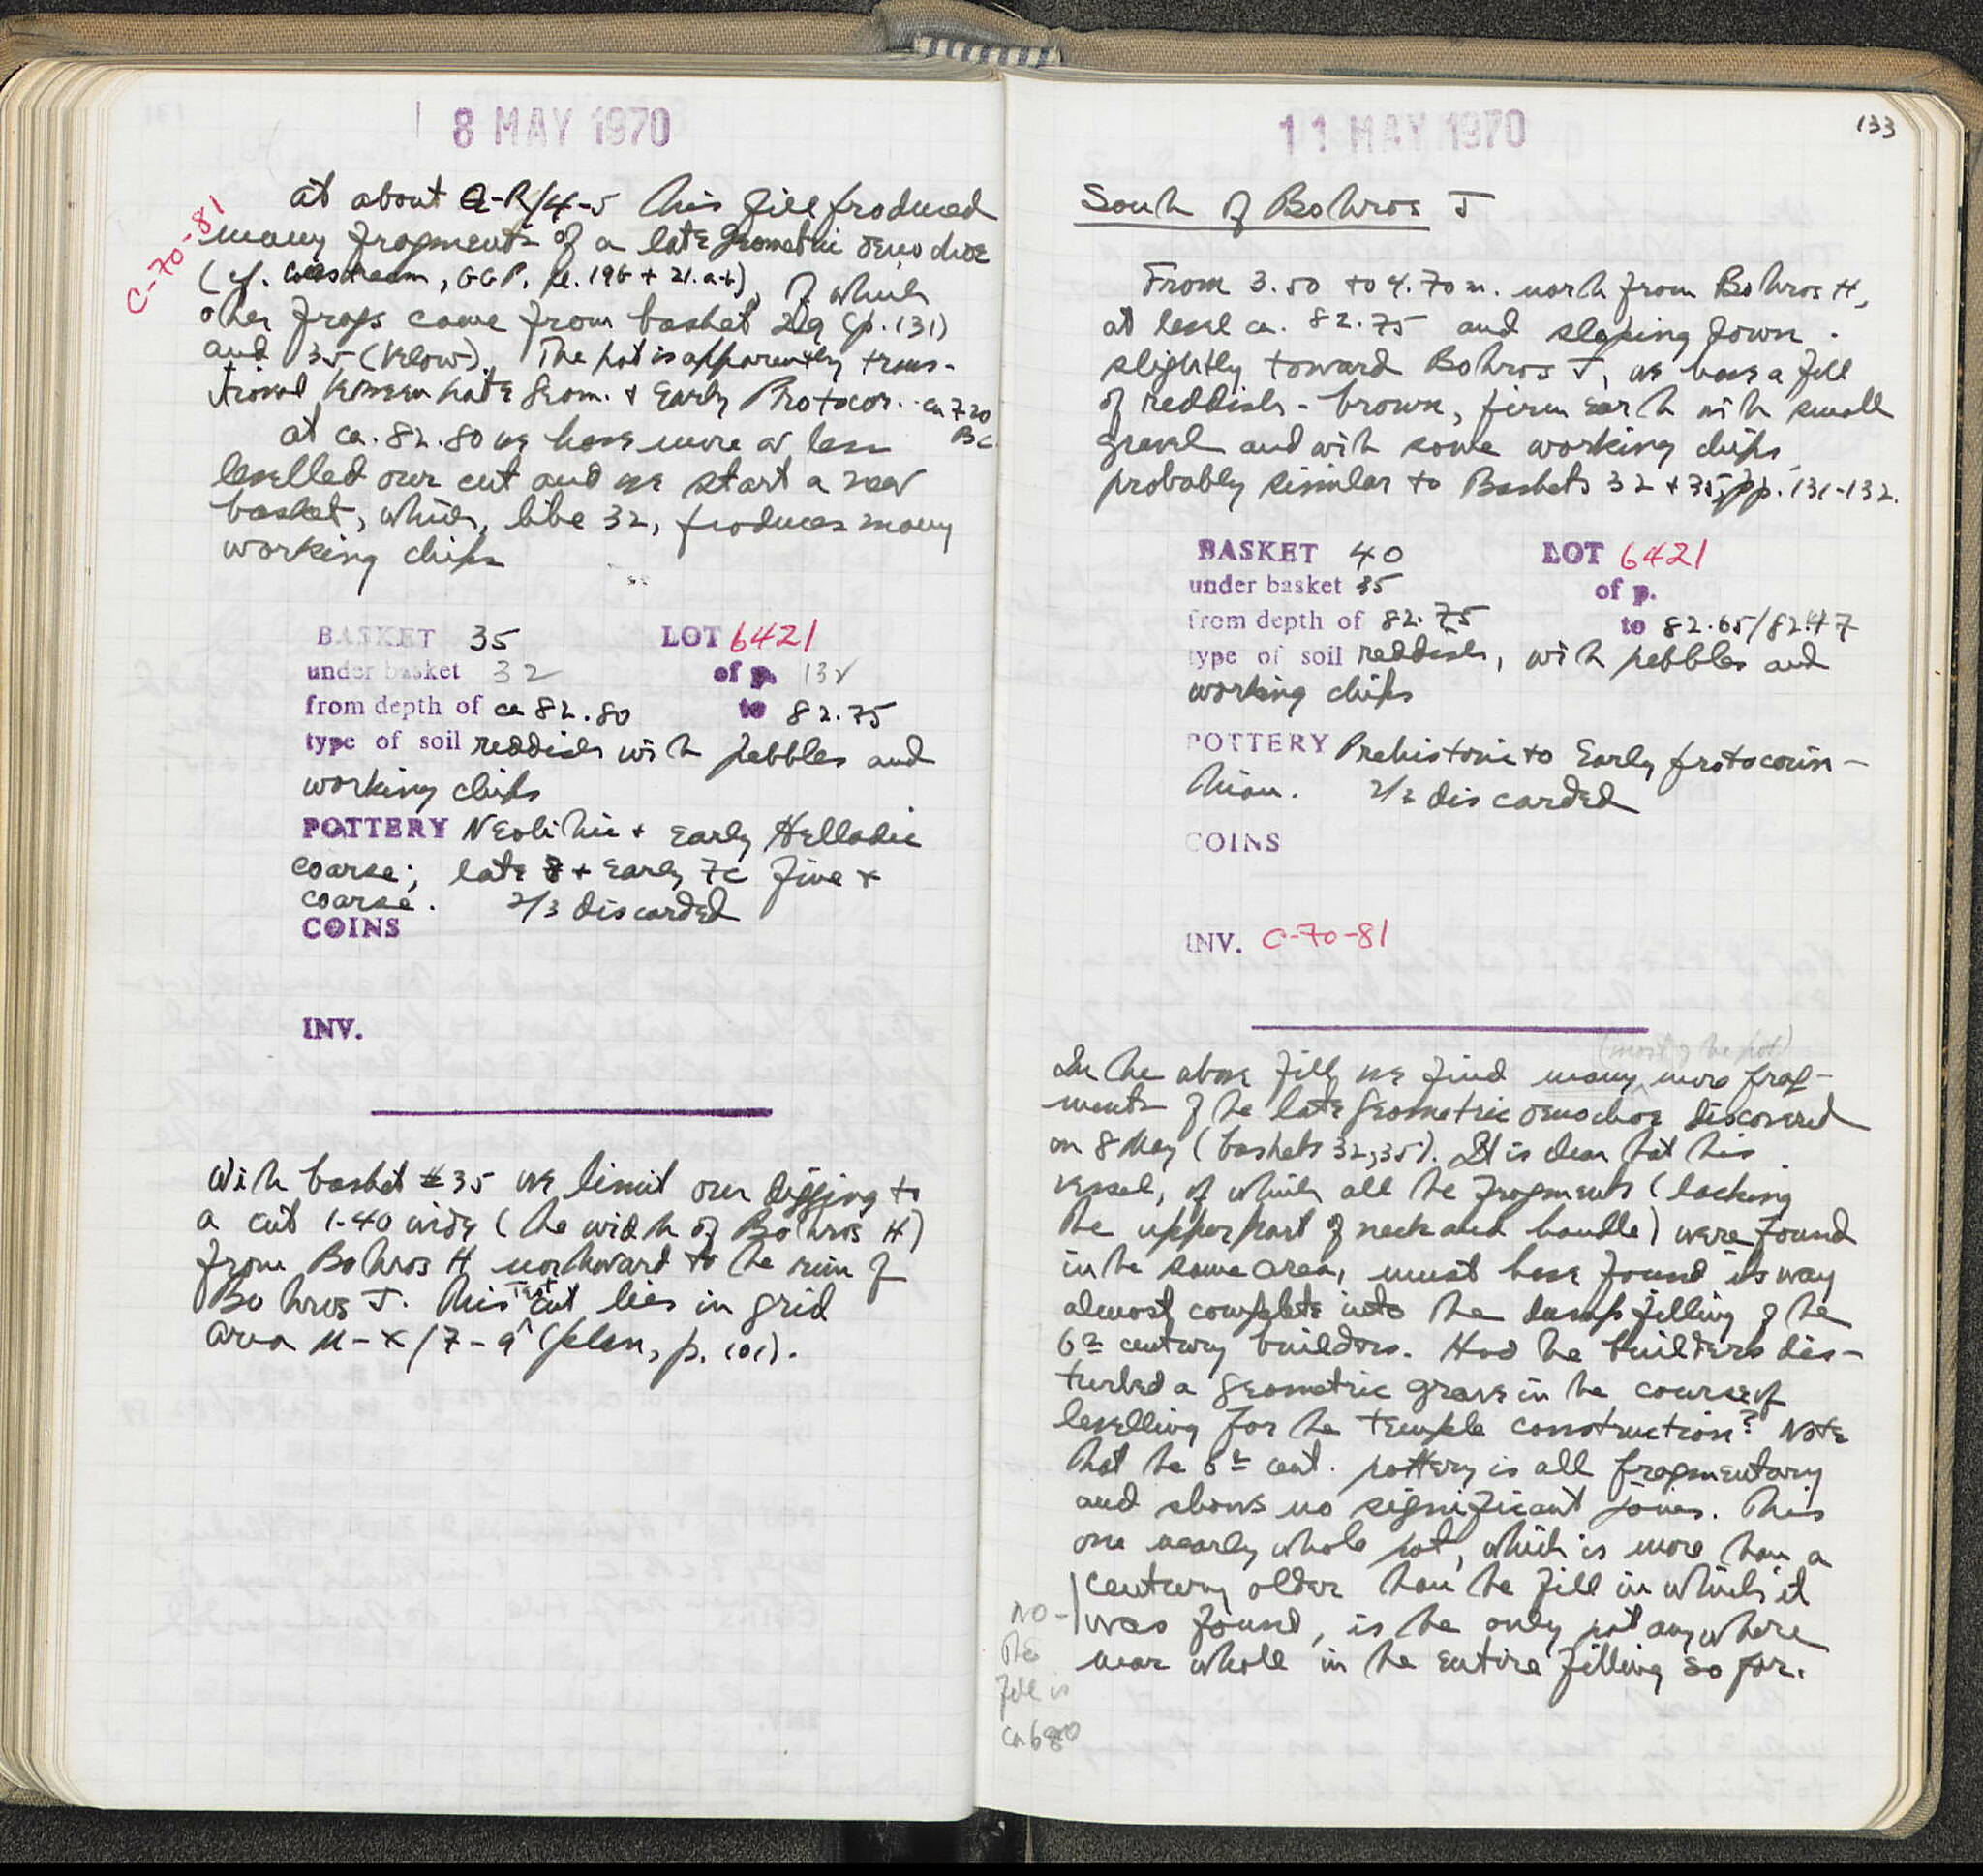 8 MAY 1970
C-70-81
At about Q-R/4-5 this fill produced
many fragments of a late Geometric oinochoe
(cf. Coldstream, GGP, pl. 19b + 21.a-b), of which
other frags come from basket 29 (p. 131)
and 35 (below). The pot is apparently trans-
itional between Late Geom. + Early Protocor. ca 720
BC.
At ca. 82.80 we have more or less
levelled our cut and we start a new
basket, which, like 32, produces many
working chips
BASKET 35 LOT 6421
under basket 32 of p. 132
from depth of ca 82.80 to 82.75
type of soil reddish with pebbles and
working chips
POTTERY Neolithic + Early Helladic
coarse; late 8 + Early 7c fine +
coarse. 2/3 discarded
COINS
INV.
With basket #35 we limit our digging to
a cut 1.40 wide (the width of Bothros H)
from Bothros H northward to the rim of
Bothros J. This test cut lies in grid
area U-X/7-9 (plan, p. 101).
11 MAY 1970
133
South of Bothros J
From 3.50 to 4.70 m. north from Bothros H,
at level ca. 82.75 and sloping down
slightly toward Bothros J, we have a fill
of reddish-brown, firm earth with small
gravel and with some working chips,
probably similar to Baskets 32 + 35, pp. 131-132.
BASKET 40 LOT 6421
under basket 35 of p.
from depth of 82.75 to 82.65/82.47
type of soil reddish, with pebbles and
working chips
POTTERY Prehistoric to Early Protocorin-
thian. 2/2 discarded
COINS
INV. C-70-81
(most of the pot)
In the above fill we find many more frag-
ments of the late Geometric oinochoe discovered
on 8 May (baskets 32,35). It is clear that this
vessel, of which all the fragments (lacking
the upper part of neck and handle) were found
in the same area, must have found its way
almost complete into the dump filling of the
6th century builders. Had the builders dis-
turbed a Geometric grave in the course of
levelling for the temple construction? Note
that the 6th cent. pottery is all fragmentary
and shows no significant joins. This
one nearly whole pot, which is more than a
century older than the fill in which it
was found, is the only pot anywhere
near whole in the entire filling so far.
NO -
the
fill is
ca 680